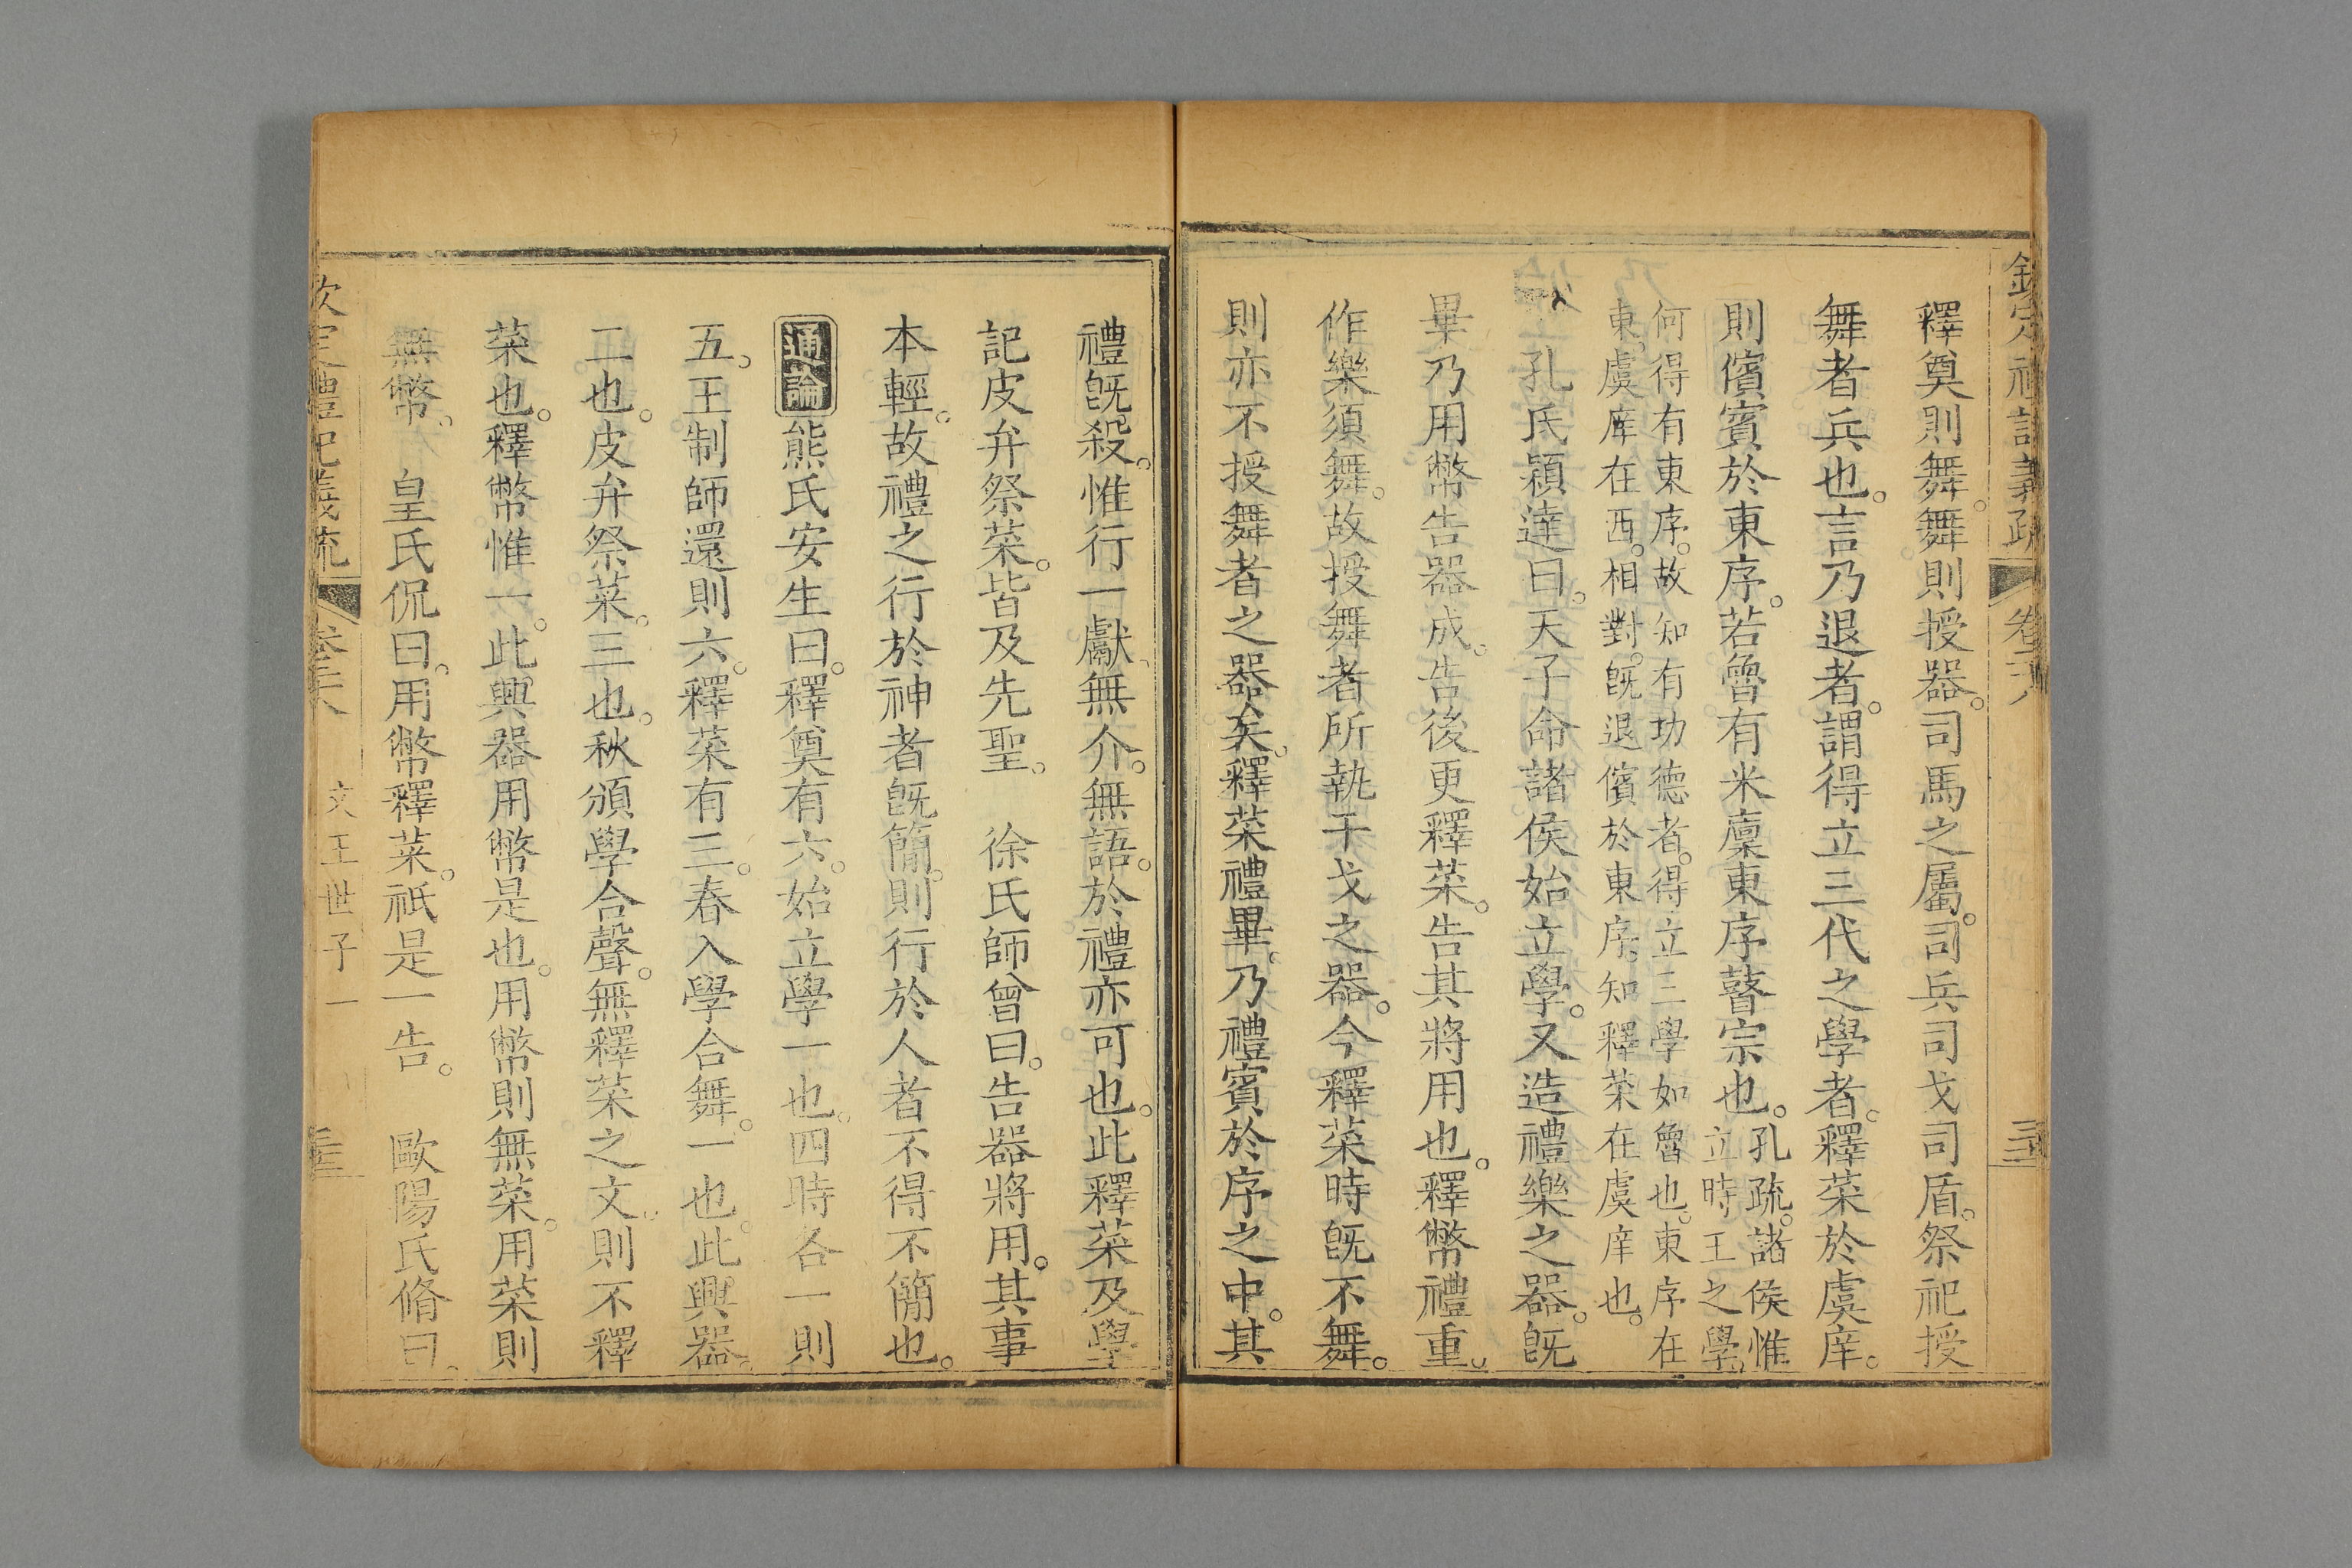 欽定禮記義疏　卷二十八　三十二
釋奠則舞。舞則授器。司馬之屬。司兵司戈司盾。祭祀授
舞者兵也。言乃退者。謂得立三代之學者。釋菜於虞庠。
則儐賓於東序。若魯有米廩東序瞽宗也。孔疏。諸侯惟
立時王之學。
何得有東序。故知有功德者。得立三學如魯也。東序在
東。虞庠在西。相對。旣退儐於東序。知釋菜在虞庠也。
孔氏穎達曰。天子命諸侯始立學。又造禮樂之器。旣
畢乃用幣告器成。告後更釋菜。告其將用也。釋幣禮重。
作樂須舞。故授舞者所執干戈之器。今釋菜時旣不舞。
則亦不授舞者之器矣。釋菜禮畢。乃禮賓於序之中。其
禮旣殺。惟行一獻。無介。無語。於禮亦可也。此釋菜及學
記皮弁祭菜。皆及先聖。　徐氏師曾曰。告器將用。其事
本輕。故禮之行於神者旣簡。則行於人者不得不簡也。
通論熊氏安生曰。釋奠有六。始立學一也。四時各一則
五。王制師還則六。釋菜有三。春入學合舞。一也。此興器。
二也。皮弁祭菜。三也。秋頒學合聲。無釋菜之文。則不釋
菜也。釋幣惟一。此興器用幣是也。用幣則無菜。用菜則
無幣。　皇氏侃曰。用幣釋菜。祇是一告。　歐陽氏脩曰。
欽定禮記義疏　卷二十八　文王世子一　三十三